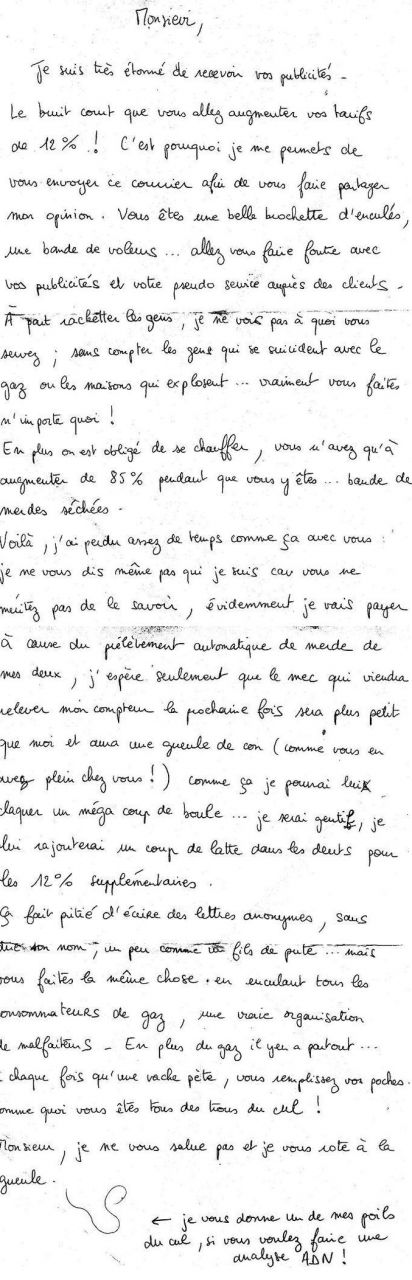 Monsieur,
Je suis très étonné de recevoir vos publicités -
Le bruit court que vous allez augmenter vos tarifs
de 12 % ! C'est pourquoi je me permets de
vous envoyer ce courrier afin de vous faire partager
mon opinion. Vous êtes une belle brochette d'enculés,
une bande de voleurs ... allez vous faire foutre avec
vos publicités et votre pseudo service auprès des clients -
À part racketter les gens, je ne vois pas à quoi vous
servez ; sans compter les gens qui se suicident avec le
gaz ou les maisons qui explosent ... vraiment vous faites
n'importe quoi !
En plus on est obligé de se chauffer, vous n'avez qu'à
augmenter de 85 % pendant que vous y êtes ... bande de
merdes séchées.
Voilà, j'ai perdu assez de temps comme ça avec vous :
je ne vous dis même pas qui je suis car vous ne
méritez pas de le savoir, évidemment je vais payer
à cause du prélèvement automatique de merde de
mes deux, j'espère seulement que le mec qui viendra
relever mon compteur la prochaine fois sera plus petit
que moi et aura une gueule de con (comme vous en
avez plein chez vous !) comme ça je pourrai lui
claquer un méga coup de boule ... je serai gentil, je
lui rajouterai un coup de latte dans les dents pour
les 12 % supplémentaires.
Ça fait pitié d'écrire des lettres anonymes, sans
son nom, un peu comme fils de pute ... mais
vous faites la même chose en enculant tous les
consommateurs de gaz, une vraie organisation
de malfaiteurs - En plus du gaz il y en a partout ...
chaque fois qu'une vache pète, vous remplissez vos poches.
comme quoi vous êtes tous des trous du cul !
Monsieur, je ne vous salue pas et je vous rote à la
gueule.
← je vous donne un de mes poils
du cul, si vous voulez faire une
analyse ADN !